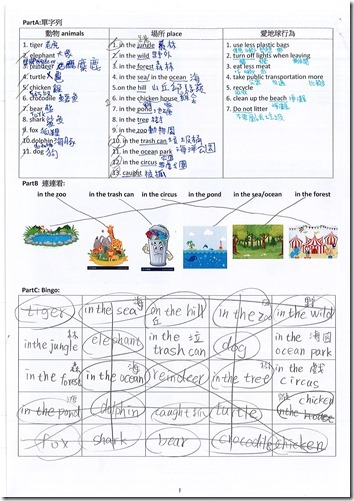 PartA:單字列
動物 animals 場所 place 愛地球行為
1. tiger 老虎
2. elephant 大象
3. reindeer 麋鹿
4. turtle
5. chicken
6. crocodile 鱷魚
7. bird 鳥
8. shark 鯊魚
9. fox 狐狸
10.dolphin 海豚
11. dog 狗
1. in the jungle 叢林
2. in the wild 野外
3. in the forest 森林
4. in the sea/ in the ocean 海
5.on the hill
6. in the chicken house
7. in the pond
8. in the tree
9. in the zoo 動物園
10. in the trash can 垃圾桶
11. in the ocean park 海洋公園
12. in the circus
13. caught
1. use less plastic bags
2. turn off lights when leaving
3. eat less meat
4. take public transportation more
5. recycle
6. clean up the beach
7. Do not litter
PartB 連連看:
in the zoo in the trash can in the circus in the pond in the sea/ocean in the forest
PartC: Bingo:
tiger in the sea 海 on the hill 丘 in the zoo in the wild 野
in the jungle elephant in the trash can 垃 dog in the ocean park
in the forest 森 in the ocean 海 reindeer in the tree in the circus
in the pond dolphin caught turtle chicken in the house
fox shark bear crocodile chicken
1